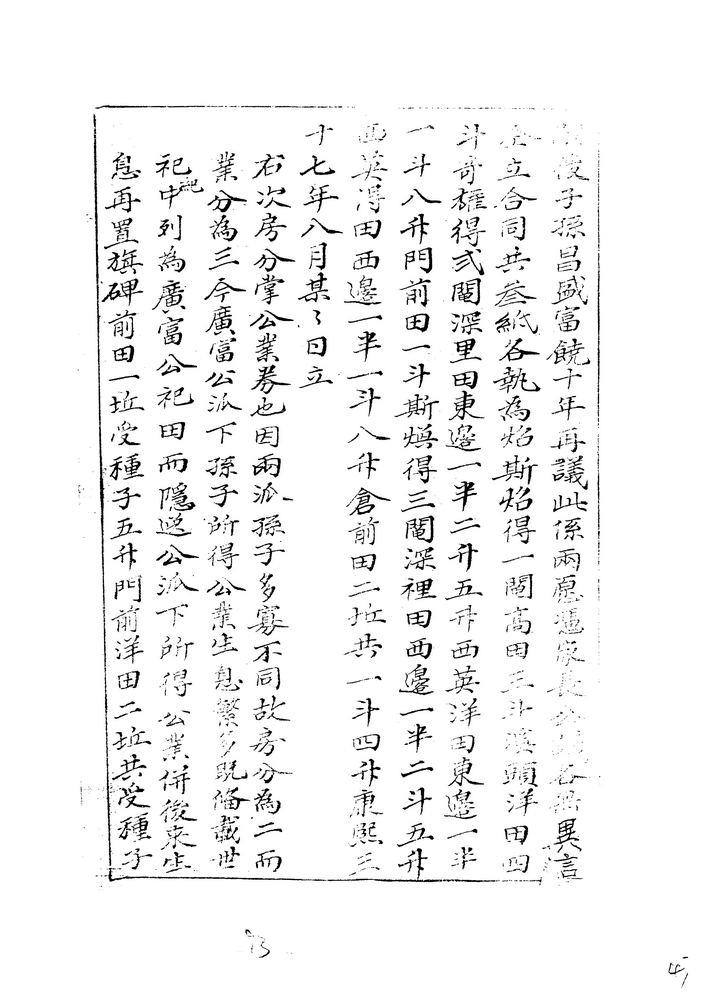 後子孫昌盛富饒十年再議此係兩愿憑家長公議各無異言
立合同共叁紙各執為炤斯焰得一鬮高田三斗溪頭洋田四
斗奇雄得弍鬮深里田東邊一半二升五升西英洋田東邊一半
一斗八升門前田一斗斯煥得三鬮深裡田西邊一半二斗五升
西英淂田西邊一半一斗八升倉前田二坵共一斗四升康熙三
十七年八月某々日立
右次房分掌公業券也因兩派孫子多寡不同故房分為二而
業分為三今廣富公派下孫子所得公業生息繁多既俻載世
祀中列為廣富公祀田而隱逸公派下所得公業併後來生
紀
息再置旗碑前田一坵受種子五升門前洋田二坵共受種子
73
45